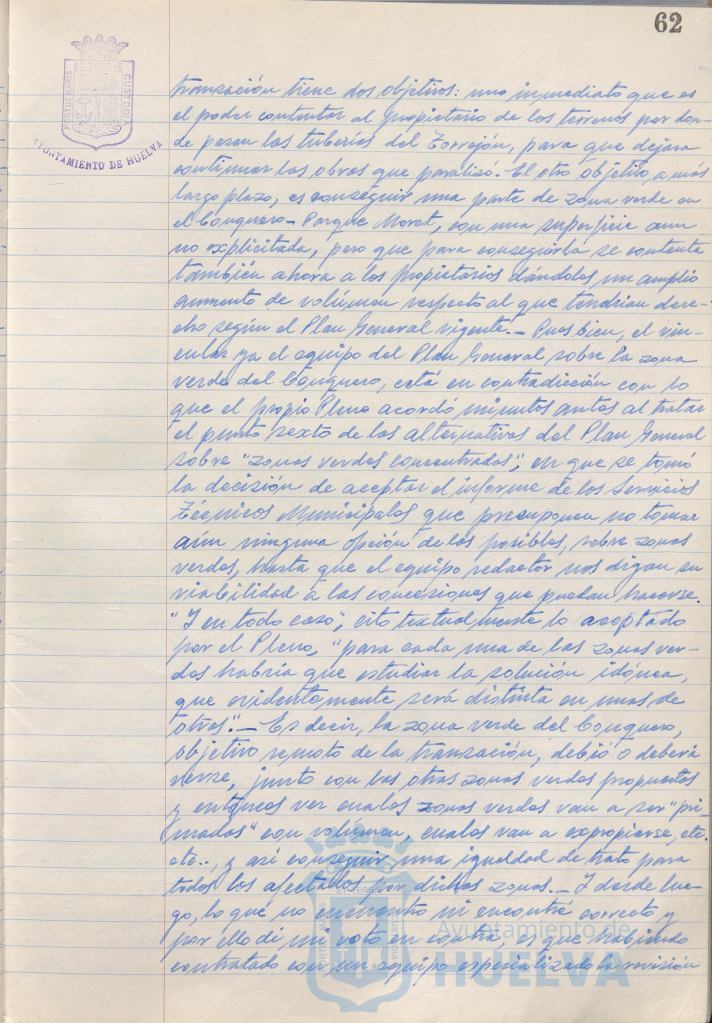 62
AYUNTAMIENTO DE HUELVA
tranzación tiene dos objetivos: uno inmediato que es
el poder contentar al propietario de los terrenos por don-
de pasan las tuberías del Torrejón, para que dejara
continuar las obras que paralizó. El otro objetivo, a más
largo plazo, es conseguir una parte de zona verde en
el Conquero - Parque Moret, con una superficie aun
no explicitada, pero que para conseguirla se contenta
también ahora a los propietarios dándoles un amplio
aumento de volúmen respecto al que tendrían dere-
cho según el Plan General vigente.- Pues bien, el vin-
cular ya el equipo del Plan General sobre la zona
verde del Conquero, está en contradicción con lo
que el propio Pleno acordó minutos antes al tratar
el punto sexto de las alternativas del Plan General
sobre "zonas verdes concentradas", en que se tomó
la decisión de aceptar el informe de los Servicios
Técnicos Municipales que presuponen no tomar
aún ninguna opción de las posibles, sobre zonas
verdes, hasta que el equipo redactor nos digan su
viabilidad a las concesiones que puedan hacerse.
"Y en todo caso", cito textualmente lo aceptado
por el Pleno, "para cada una de las zonas ver-
des habría que estudiar la solución idónea,
que evidentemente será distinta en unas de
otras".- Es decir, la zona verde del Conquero,
objetivo remoto de la tranzación, debió o deberá
verse, junto con las otras zonas verdes propuestas
y entonces ver cuales zonas verdes van a ser "pri-
madas" con volúmen, cuales van a expropiarse, etc.
etc.., y así conseguir una igualdad de trato para
todos los afectados por dichas zonas.- Y desde lue-
go, lo que no encuentro ni encontré correcto y
por ello di mi voto en contra, es que habiendo
contratado con un equipo especializado la revisión
Ayuntamiento de
HUELVA